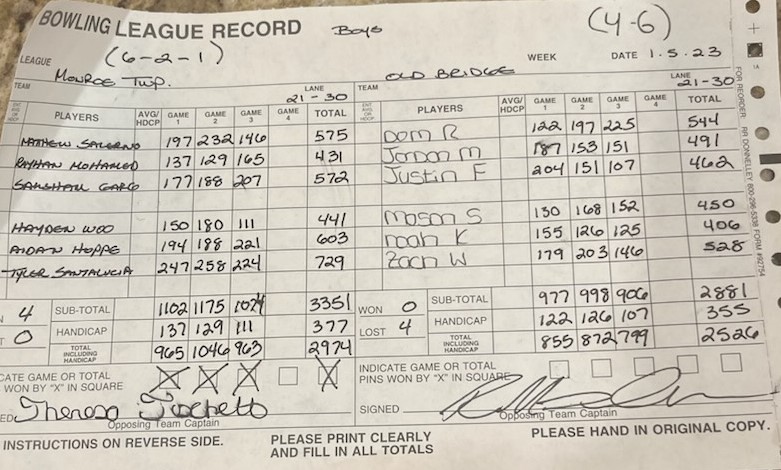 BOWLING LEAGUE RECORD Boys (4-6)
LEAGUE (6-2-1) WEEK DATE 1.5.23
TEAM MONROE TWP. LANE 21-30 TEAM OLD BRIDGE LANE 21-30
PLAYERS AVG/HDCP GAME 1 GAME 2 GAME 3 GAME 4 TOTAL PLAYERS AVG/HDCP GAME 1 GAME 2 GAME 3 GAME 4 TOTAL
MATHEW SALERNO 197 232 146 575 Dom R 122 197 225 544
RAYHAN MOHAMED 137 129 165 431 Jordan M 187 153 151 491
SAKSHAM GARG 177 188 207 572 Justin F 204 151 107 462
HAYDEN WOO 150 180 111 441 Mason S 130 168 152 450
AIDAN HOPPE 194 188 221 603 noah K 155 126 125 406
TYLER SANTALUCIA 247 258 224 729 Zach W 179 203 146 528
4 SUB-TOTAL 1102 1175 1074 3351 WON 0 SUB-TOTAL 977 998 906 2881
0 HANDICAP 137 129 111 377 LOST 4 HANDICAP 122 126 107 355
TOTAL INCLUDING HANDICAP 965 1046 963 2974 TOTAL INCLUDING HANDICAP 855 872 799 2526
CATE GAME OR TOTAL WON BY "X" IN SQUARE X X X X INDICATE GAME OR TOTAL PINS WON BY "X" IN SQUARE
ED Theresa SIGNED
Opposing Team Captain Opposing Team Captain
INSTRUCTIONS ON REVERSE SIDE. PLEASE PRINT CLEARLY AND FILL IN ALL TOTALS PLEASE HAND IN ORIGINAL COPY.
FOR REORDER RR DONNELLEY 800-296-5338 FORM #92754